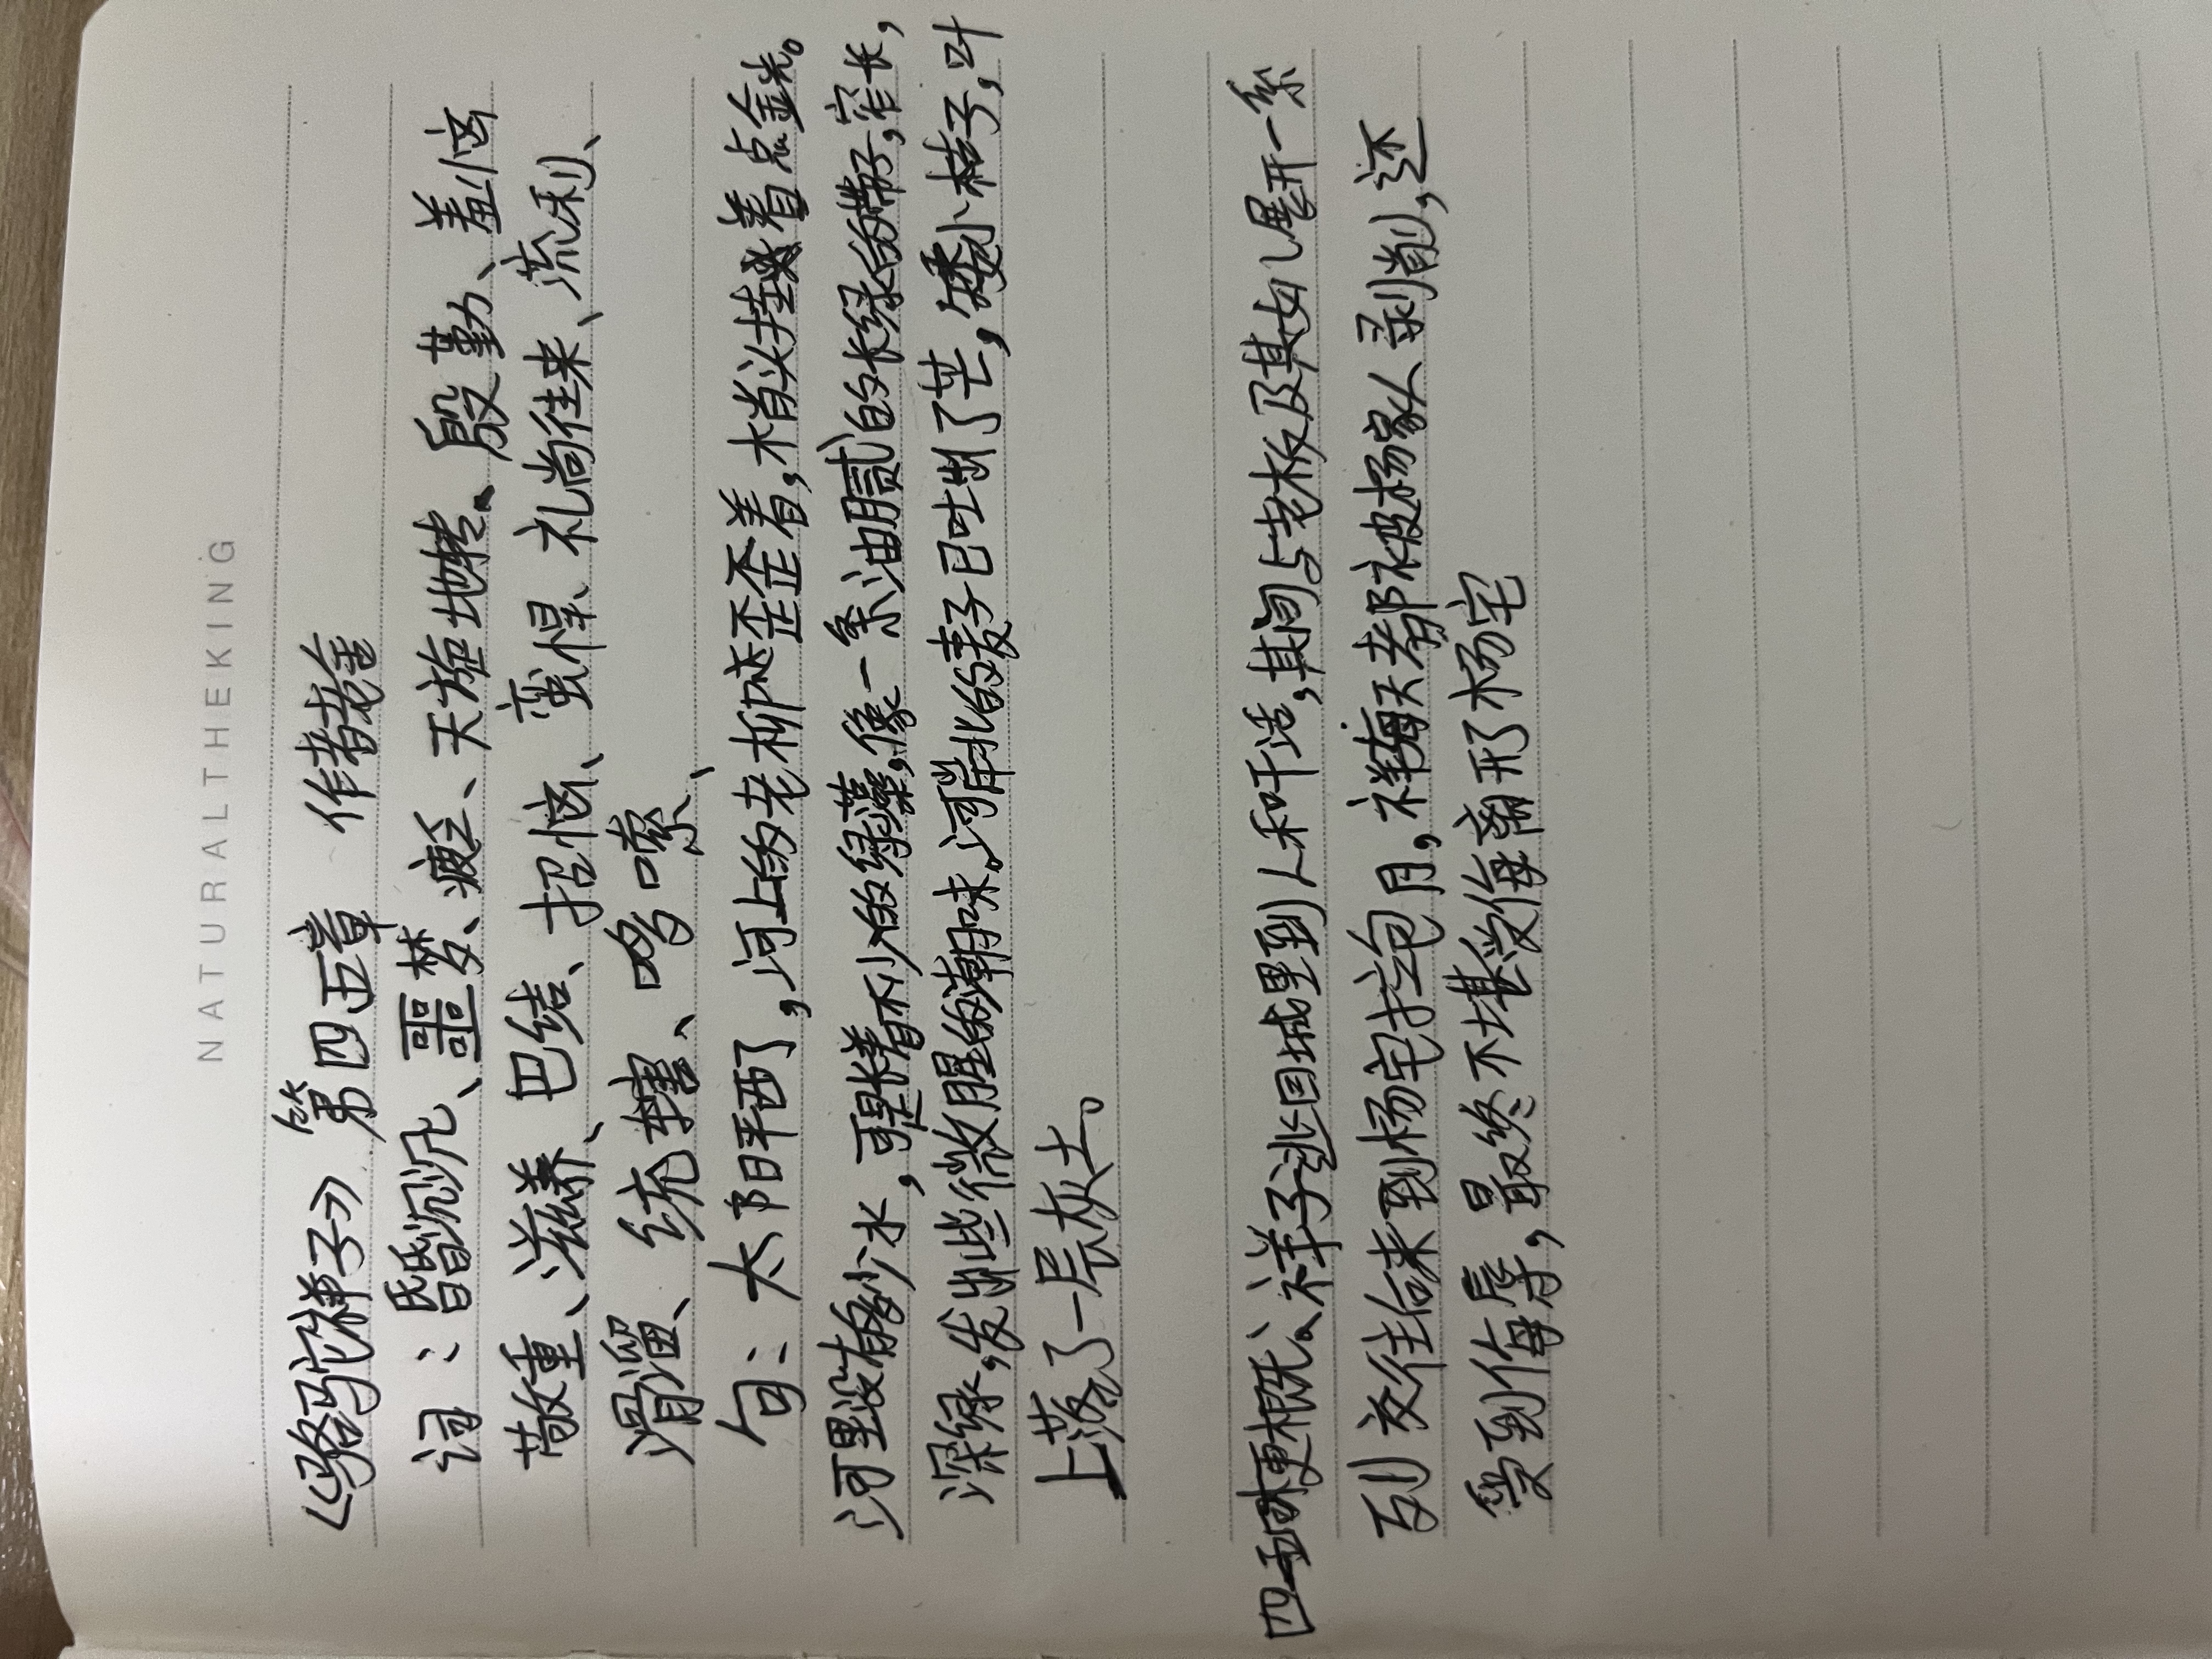 NATURALTHEKING
《骆驼祥子》 第四五章 作者老舍
词：昏昏沉沉、噩梦、疲乏、天旋地转、殷勤、羞恼
敬重、滋养、巴结、招恼、蛮悍、礼尚往来、流利、
滑溜、统辖、啰嗦、
句：太阳平西了，河上的老柳歪歪着，梢头挂着点金光。
河里没有多少水，可是长着不少的绿藻，像一条油腻的长绿的带子，窄长，
深绿，发出些微腥的潮味。河岸北的麦子已吐出了芒，矮小枯子，叶
上落了一层灰土。
四五章梗概：祥子逃回城里到人和干活，期间与老板及其女儿展开一系
列交往后来到杨宅拉包月，祥子每天都被杨家人剥削，还
受到侮辱，最终不堪受侮离开了杨宅